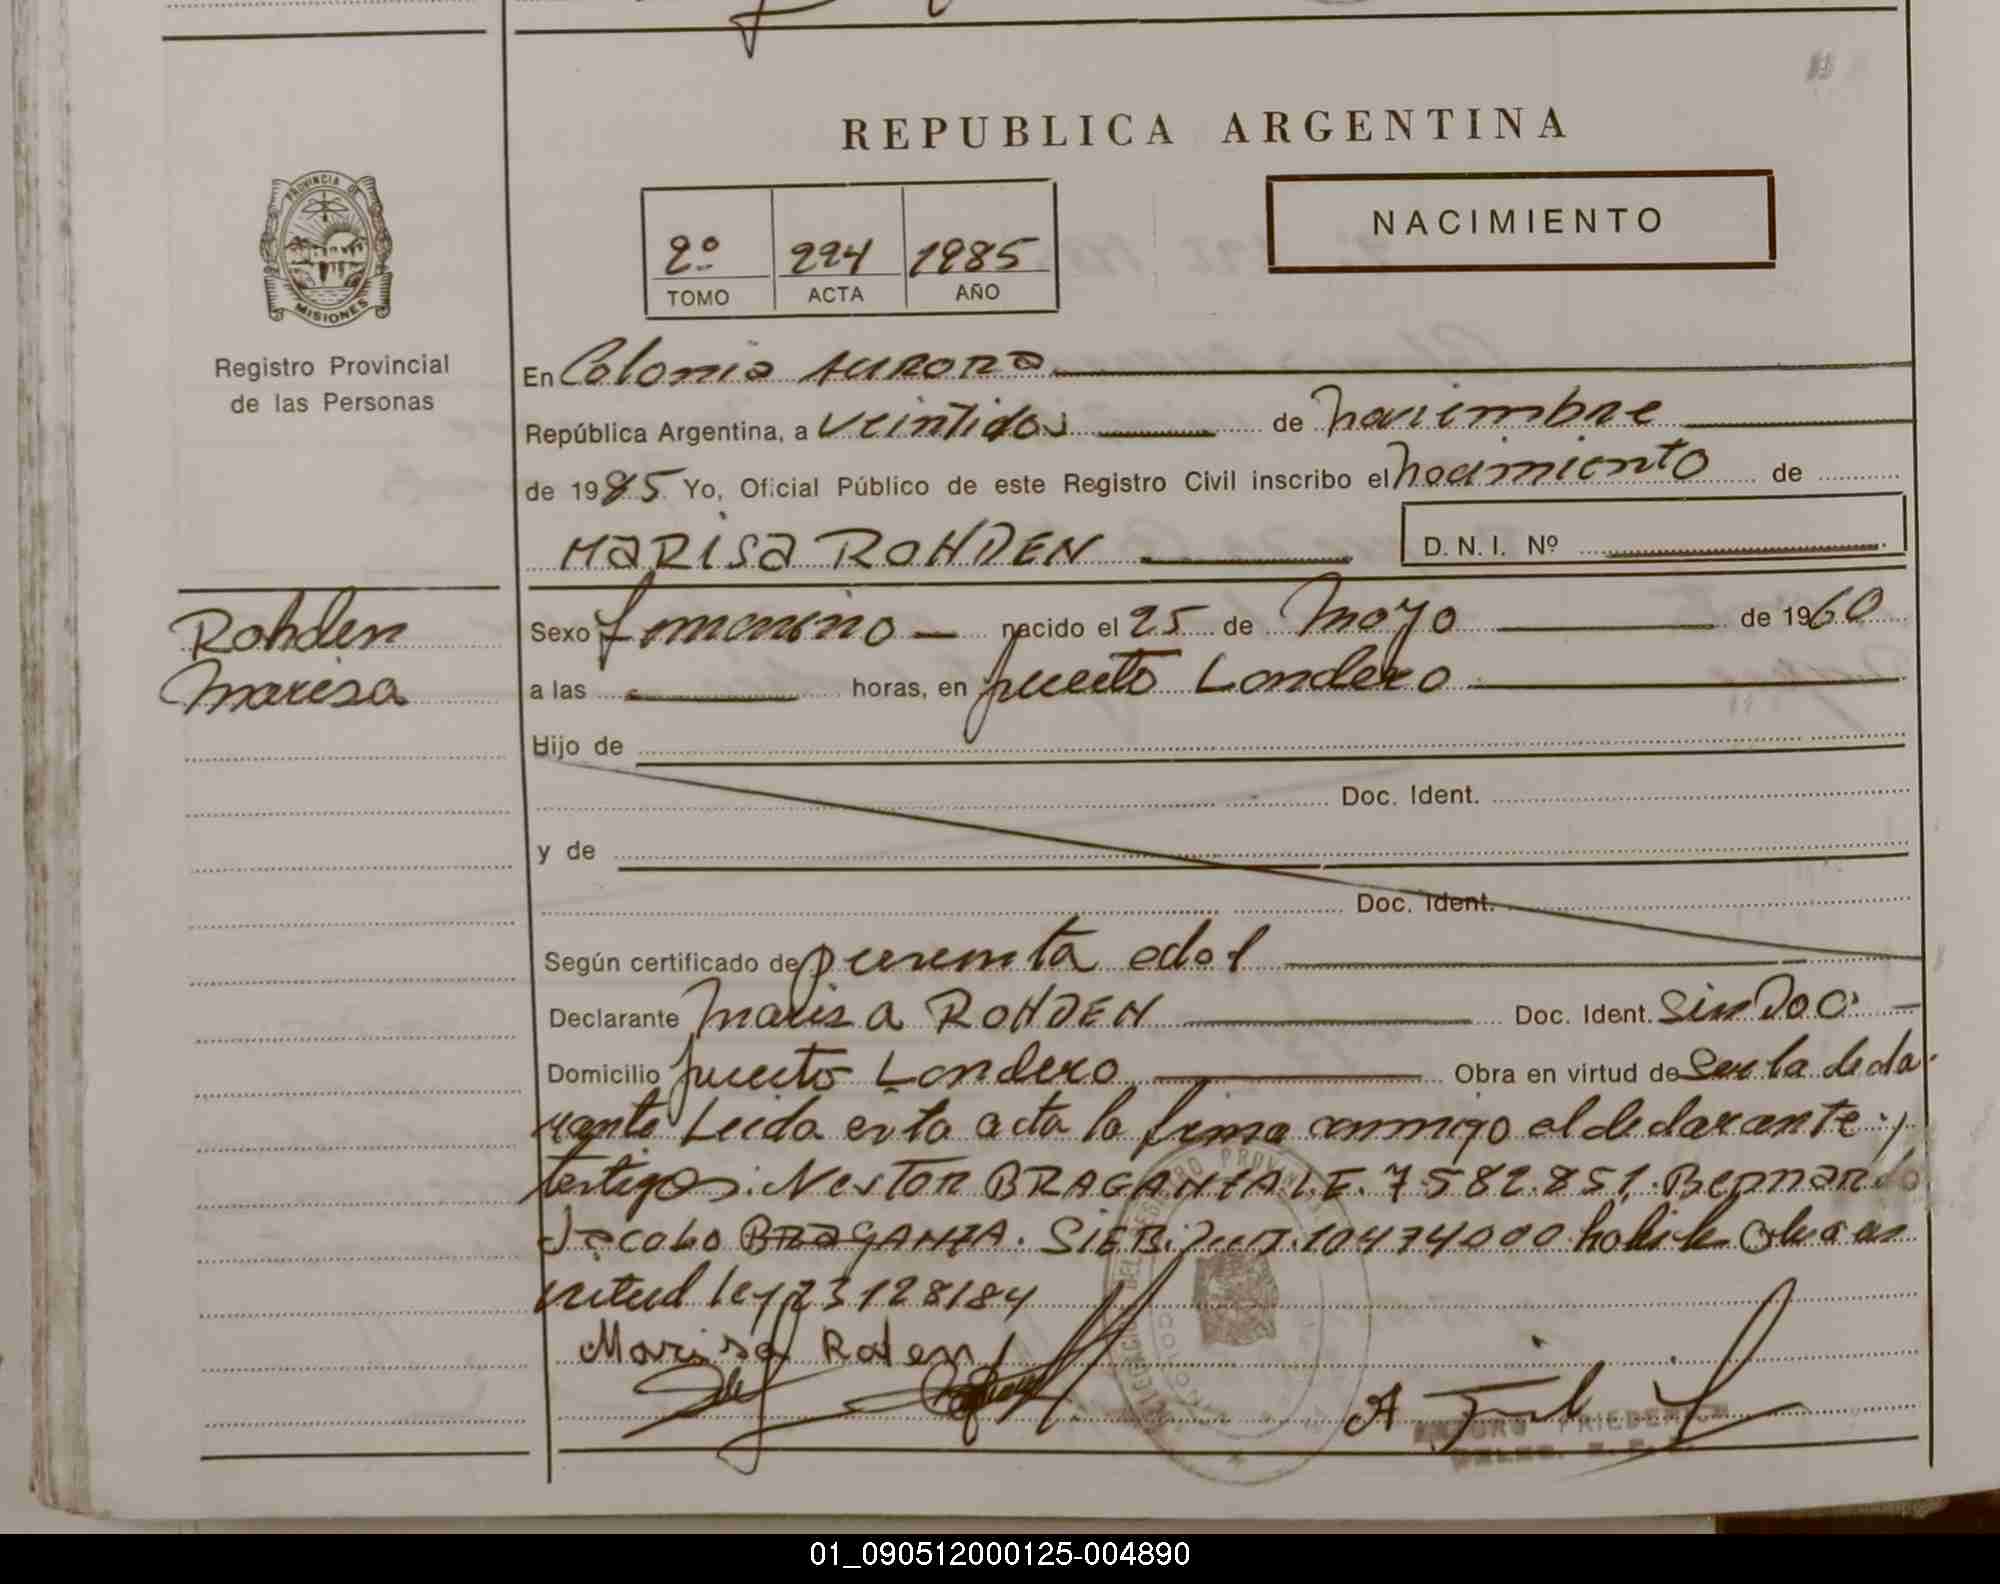 REPUBLICA ARGENTINA
NACIMIENTO
2º 224 1985
TOMO ACTA AÑO
PROVINCIA DE
MISIONES
Registro Provincial
de las Personas
En Colonia Aurora
República Argentina, a veintidos de noviembre
de 1985 Yo, Oficial Público de este Registro Civil inscribo el nacimiento de
MARISA ROHDEN D.N.I. Nº
Rohden
Marisa
Sexo femenino nacido el 25 de Mayo de 1960
a las horas, en puerto Londero
Hijo de
Doc. Ident.
y de
Doc. Ident.
Según certificado de presunta edad
Declarante Marisa ROHDEN Doc. Ident. Sin Doc.
Domicilio puerto Londero Obra en virtud de Ser la decla
rante Leida esta acta la firma conmigo el declarante y
testigos: Nestor BRAGANZA L.E. 7.582.851. Bernardo
Jacobo BRAGANZA. SIEB. 10474000 Obra en
virtud ley 23128/84
Marisa Roden
A
ARTURO FRIEDERICH
01_090512000125-004890